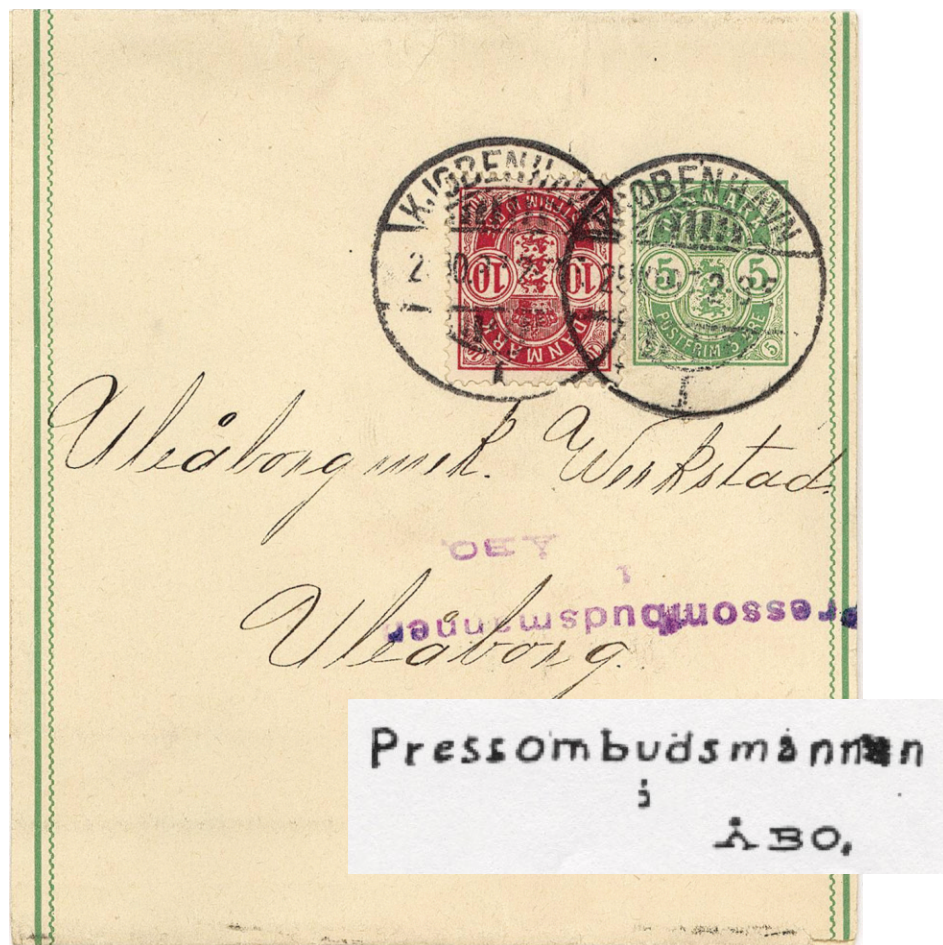 KJØBENHAVN
KJØBENHAVN
10 10
DANMARK
5 5
POSTFRIM. 5 ØRE
5
Uleåborg mek. Werkstad.
Pressombudsmannen
i
ÅBO.
Uleåborg.
Pressombudsmannen
i
ÅBO.